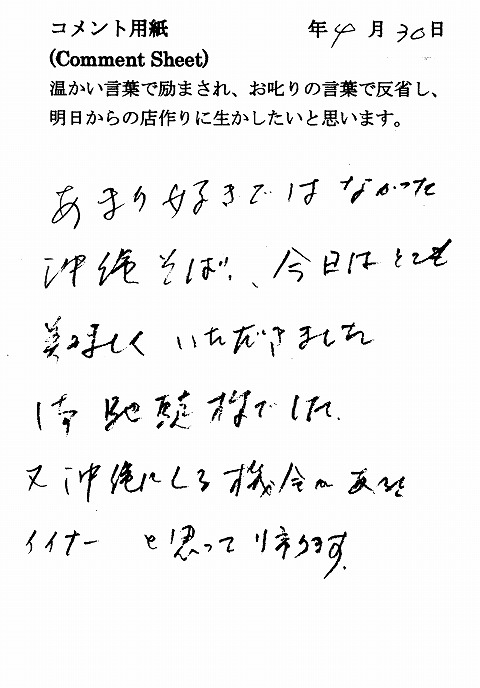 コメント用紙 年4月30日
(Comment Sheet)
温かい言葉で励まされ、お叱りの言葉で反省し、
明日からの店作りに生かしたいと思います。
あまり好きではなかった
沖縄そば、今日はとても
美味しくいただきました
御馳走様でした。
又沖縄にくる機会があると
イイナーと思って帰ります。